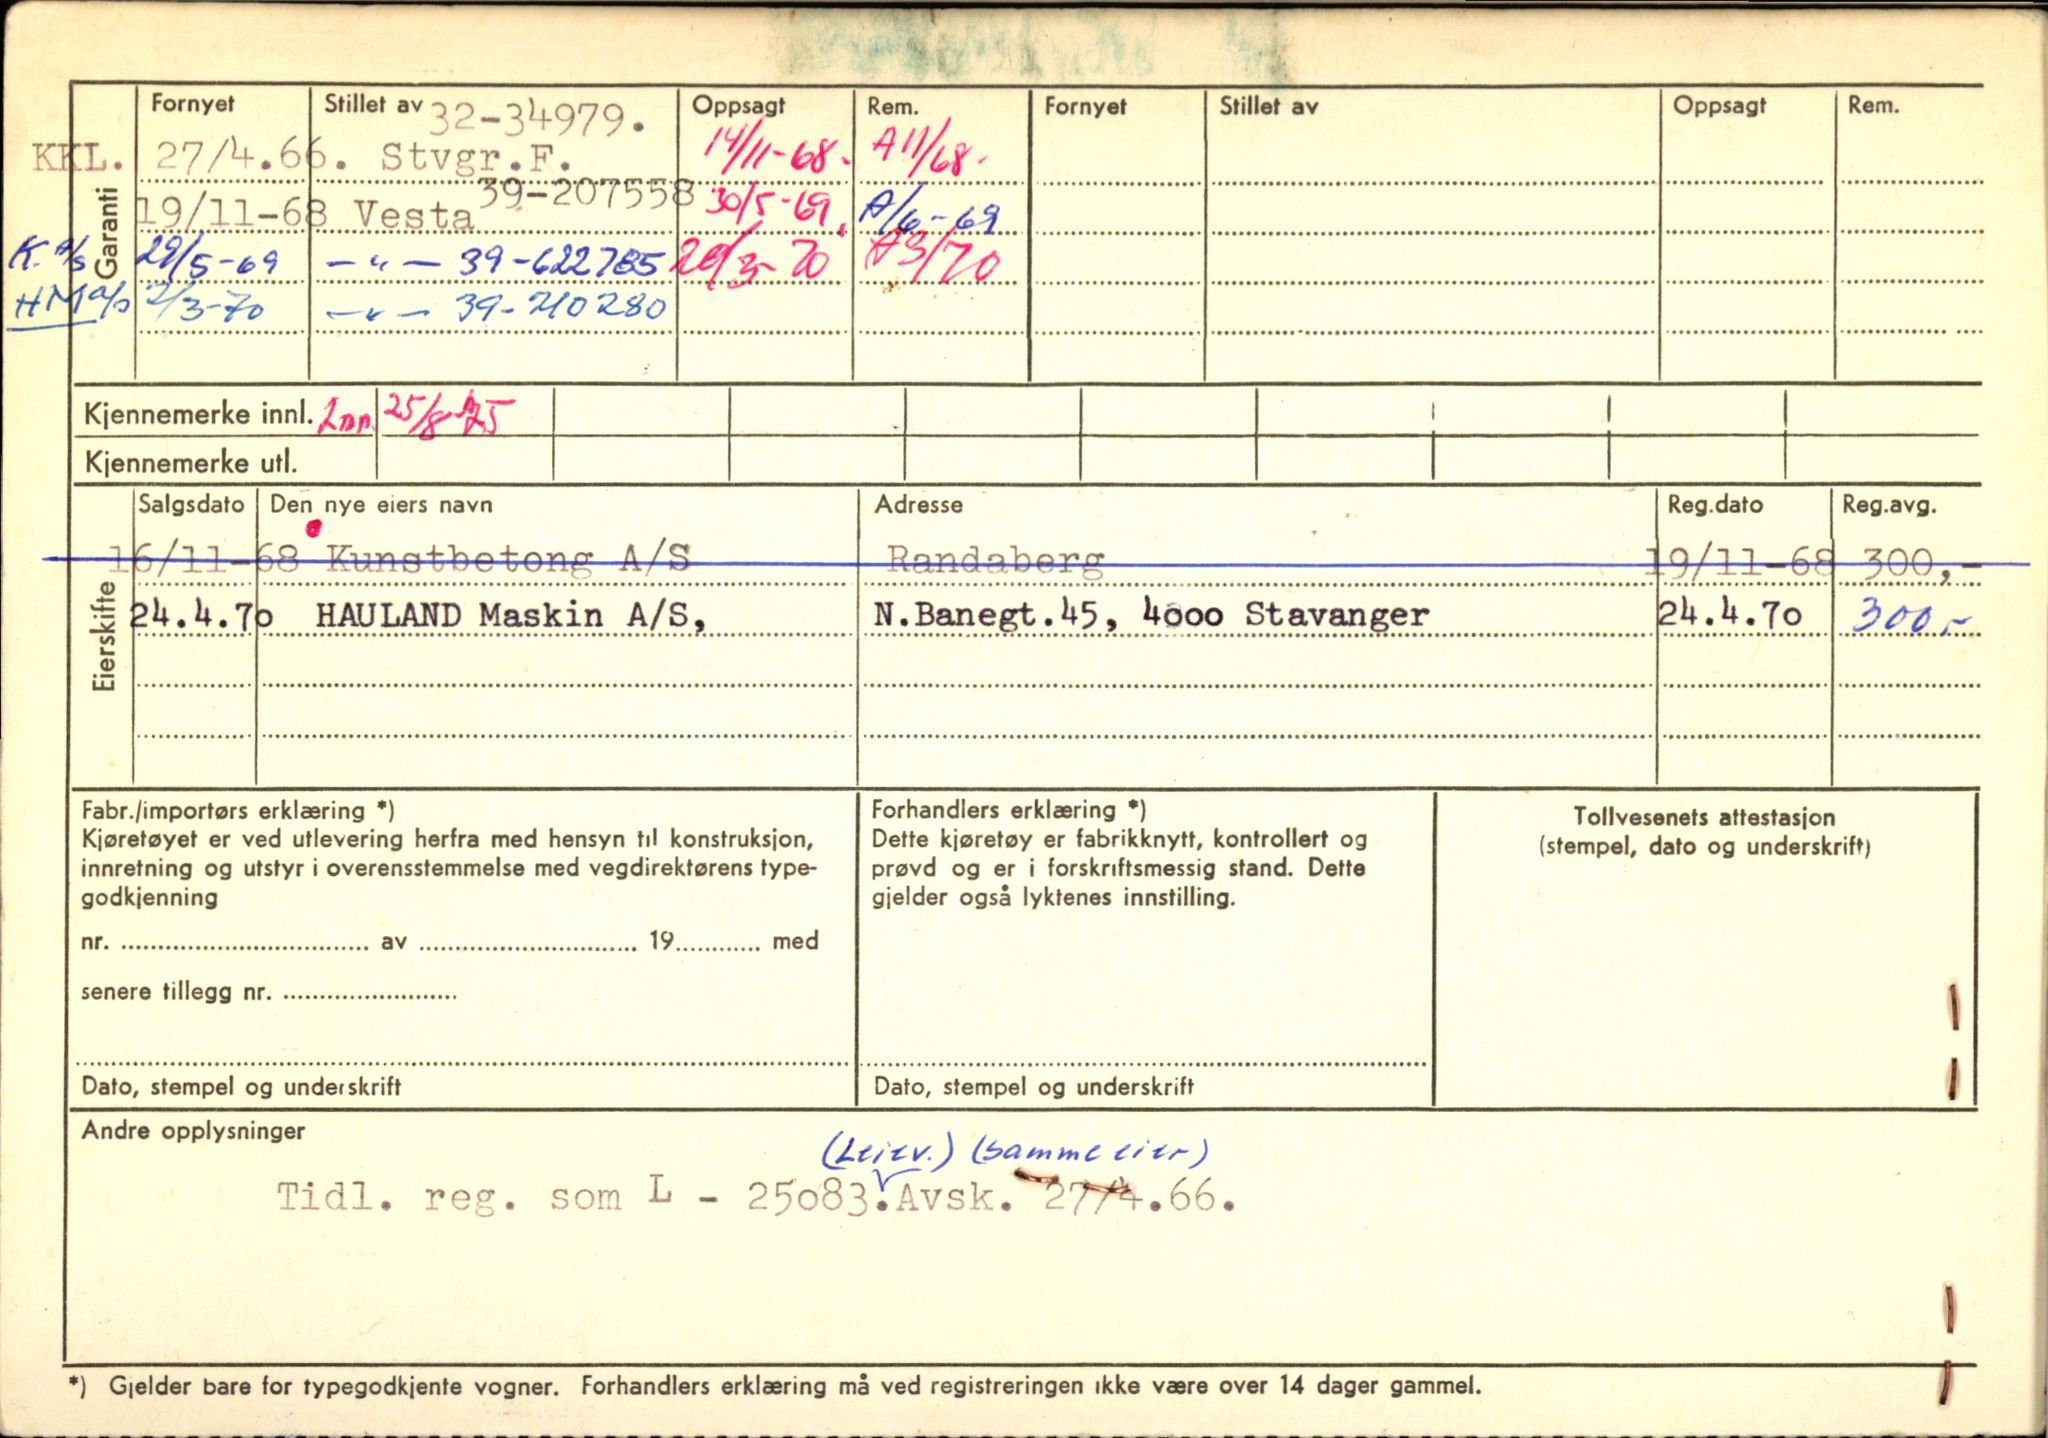 Fornyet Stillet av Oppsagt Rem. Fornyet Stillet av Oppsagt Rem.
32-34979.
KKL. 27/4.66. Stvgr.F. 14/11-68. A11/68.
39-207558
19/11-68 Vesta 30/5-69, A/6-69
K. A/S 29/5-69 — " — 39-622785 3-70 A3/70
HM a/s 2/3-70 — " — 39-210280
Garanti
Kjennemerke innl. Inn. 25/8-75
Kjennemerke utl.
Salgsdato Den nye eiers navn Adresse Reg.dato Reg.avg.
16/11-68 Kunstbetong A/S Randaberg 19/11-68 300,-
24.4.70 HAULAND Maskin A/S, N.Banegt.45, 4000 Stavanger 24.4.70 300,-
Eierskifte
Fabr./importørs erklæring *)
Kjøretøyet er ved utlevering herfra med hensyn til konstruksjon,
innretning og utstyr i overensstemmelse med vegdirektørens type-
godkjenning
nr. .......... av .......... 19.......... med
senere tillegg nr. ..........
Dato, stempel og underskrift
Forhandlers erklæring *)
Dette kjøretøy er fabrikknytt, kontrollert og
prøvd og er i forskriftsmessig stand. Dette
gjelder også lyktenes innstilling.
Dato, stempel og underskrift
Tollvesenets attestasjon
(stempel, dato og underskrift)
Andre opplysninger
(Leiev.) (samme eier)
Tidl. reg. som L - 25083. Avsk. 27/4.66.
*) Gjelder bare for typegodkjente vogner. Forhandlers erklæring må ved registreringen ikke være over 14 dager gammel.